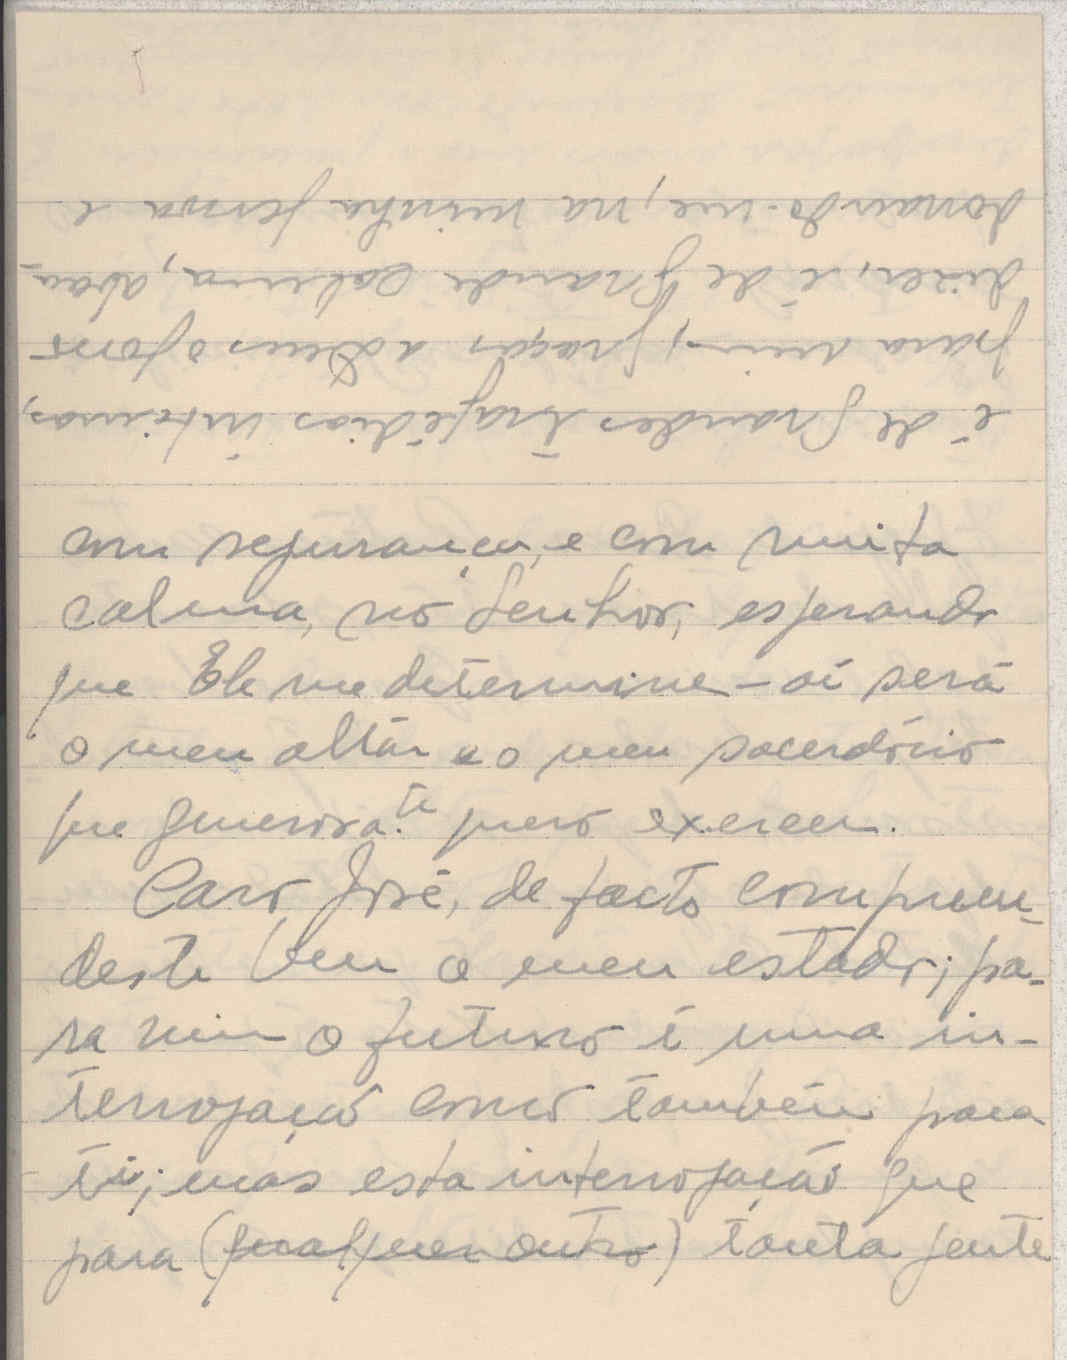 com segurança, e com muita
calma, no Senhor, esperando
que Ele me determine – aí será
o meu altar e o meu sacerdócio
que generosa.te quero exercer.
Caro José, de facto compreen-
deste bem o meu estado; pa-
ra mim o futuro é uma in-
terrogação como também para
ti; mas esta interrogação que
para (qualquer outro) tanta gente
é de grandes tragédias íntimas,
para mim, graças a Deus o posso
dizer, é de grande calma, aban-
donando-me, na minha pessoa e